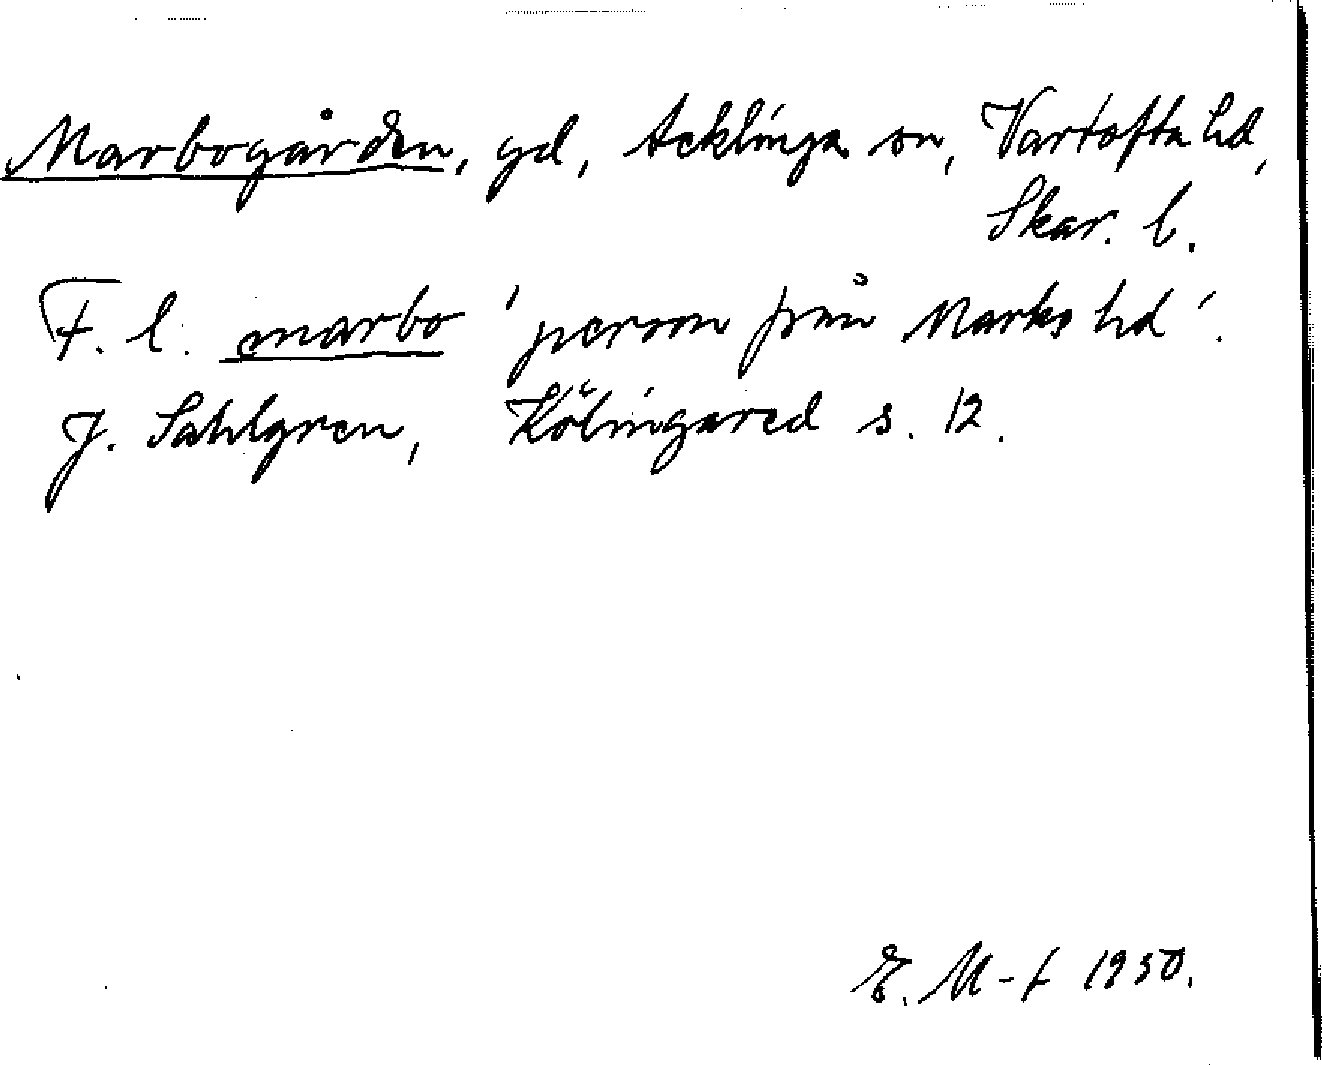 Marbogården, gd, Acklinga sn, Vartofta hd,
Skar. l.
F. l. marbo 'person från Marks hd'.
J. Sahlgren, Kölingared s. 12.
E. M-t 1950.